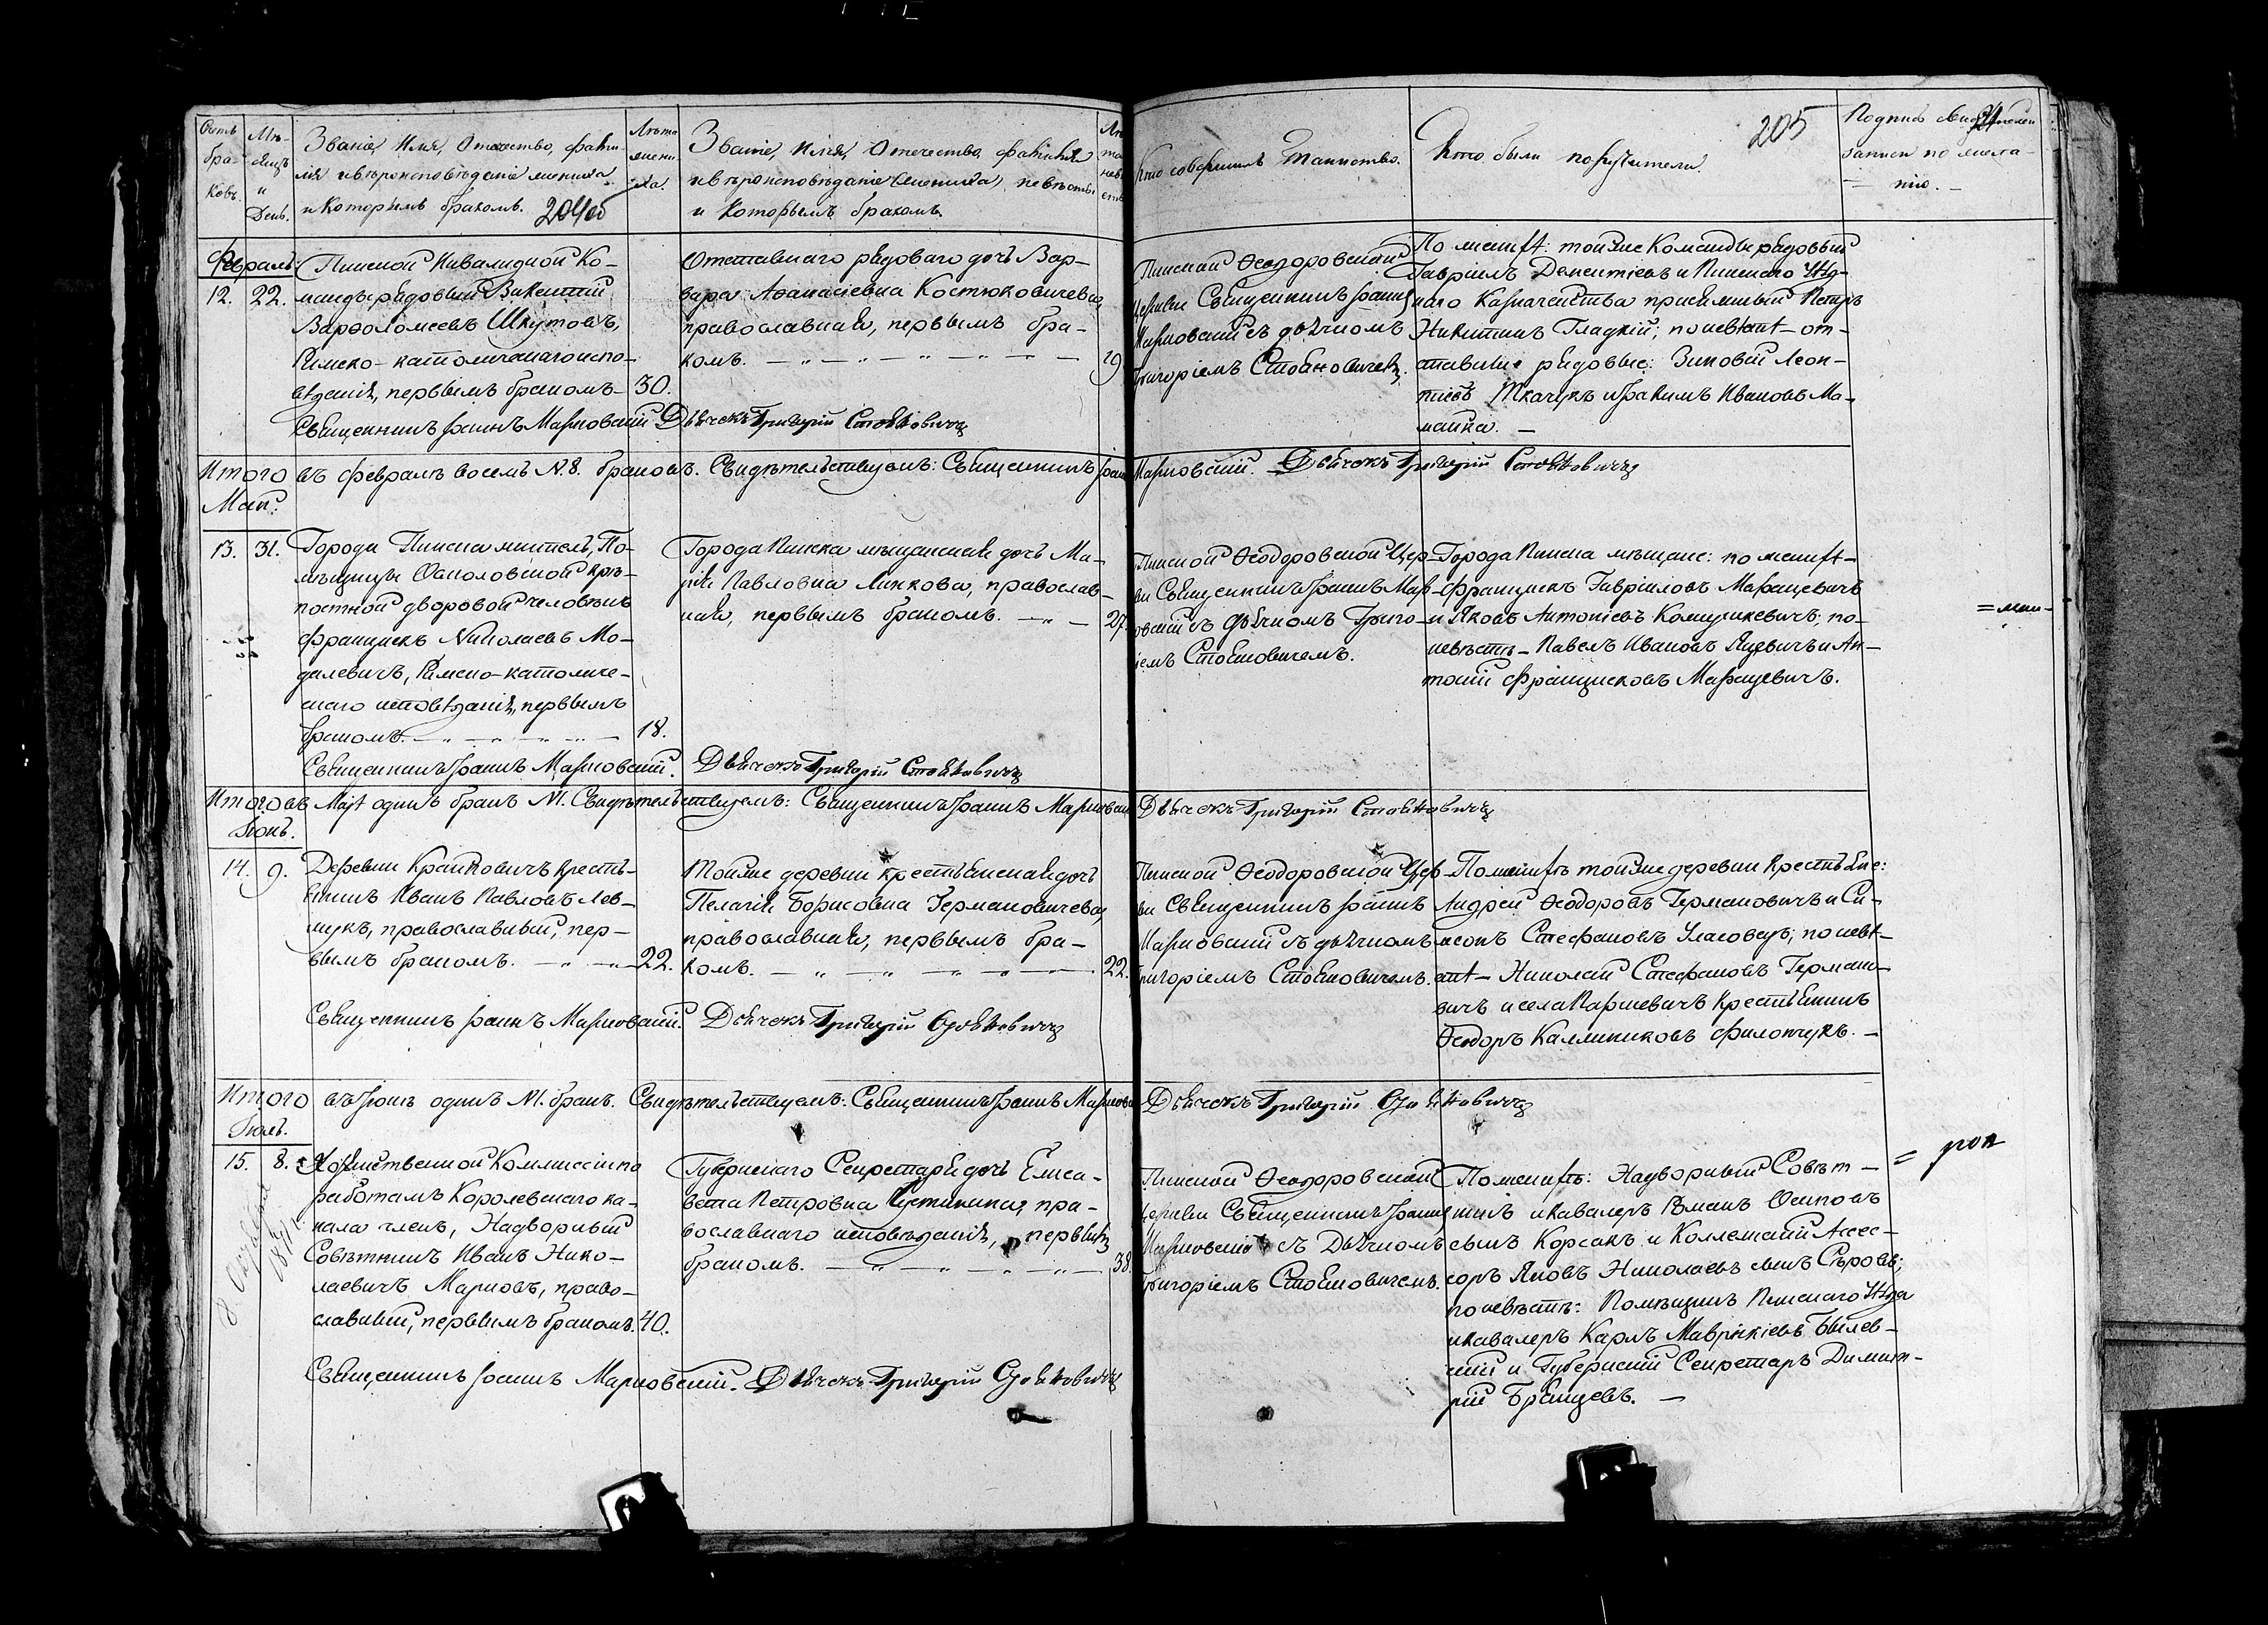 Счетъ бра- ковъ.
Мѣ- сяцъ и День.
Званіе, Имя, Отечество, фами-
лія и вѣроисповѣданіе жениха
и которымъ бракомъ. 204об
Лѣта жени- ха.
Званіе, Имя, Отечество, фамилія
и вѣроисповѣданіе невѣсты
и которымъ бракомъ.
Лѣ- та невѣ- сты
Кто совершилъ Таинство.
Кто были поручители.
205
Подпись свидѣтелей
записи по жела-
нію. —
Февраль.
12. 22.
Пинской Инвалидной Ко-
манды рядовый Викентій
Варѳоломеевъ Шкутовъ,
Римско-католическаго испо-
вѣданія, первымъ бракомъ- 30.
Отставнаго рядоваго дочь Вар-
вара Аѳанасіевна Костюковичева,
православная, первымъ бра-
комъ. — „ — „ — „ — „ — 29
Пинской Ѳеодоровской
Церкви Священникъ Іоаннъ
Марковскій съ дьячкомъ
Григоріемъ Стояновичемъ.
По женихѣ: тойже Команды рядовый
Гавріилъ Дементіевъ и Пинскаго Уѣзд-
наго Казначейства присяжный Петръ
Никитинъ Гладкій; по невѣстѣ – от-
ставные рядовые: Зиновій Леон-
тіевъ Ткачукъ и Іракимъ Ивановъ Ма-
майка. —
Священникъ Іоаннъ Марковскій Дьячекъ Григорій Стояновичъ
Итого въ февралѣ восемь N. 8. браковъ. Свидѣтельствуемъ: Священникъ Іоаннъ Марковскій. Дьячекъ Григорій Стояновичъ
Май.
13. 31.
Города Пинска житель, По-
мѣщицы Осиповской крѣ-
постной дворовой человѣкъ
Францискъ Николаевъ Мо-
далевичъ, Римско-католиче-
скаго исповѣданія, первымъ
бракомъ. — „ — „ — „ — 18.
Города Пинска мѣщанская дочь Ма-
рія Павловна Линкова, православ-
ная, первымъ бракомъ. — „ — 27.
Пинской Ѳеодоровской Цер-
кви Священникъ Іоаннъ Мар-
ковскій съ дьячкомъ Григо-
ріемъ Стояновичемъ.
Города Пинска мѣщане: по женихѣ –
Францискъ Гавріиловъ Марацевичъ
и Яковъ Антоніевъ Комшукевичъ; по
невѣстѣ – Павелъ Ивановъ Яцевичъ и Ан-
тоній Францисковъ Марацевичъ.
Священникъ Іоаннъ Марковскій. Дьячекъ Григорій Стояновичъ
Итого въ Маѣ одинъ бракъ N1. Свидѣтельствуемъ: Священникъ Іоаннъ Марковскій Дьячекъ Григорій Стояновичъ
Іюнь.
14. 9.
Деревни Крайновичъ кресть-
янинъ Иванъ Павловъ Лев-
чукъ, православный, пер-
вымъ бракомъ. — „ — „ 22.
Тойже деревни крестьянская дочь
Пелагія Борисовна Германовичева,
православная, первымъ бра-
комъ. — „ — „ — „ — „ — 22.
Пинской Ѳеодоровской Цер-
кви Священникъ Іоаннъ
Марковскій съ дьячкомъ
Григоріемъ Стояновичемъ.
По женихѣ тойже деревни крестьяне:
Андрей Ѳеодоровъ Германовичъ и Си-
меонъ Стефановъ Улаговецъ; по невѣ-
стѣ – Николай Стефановъ Германо-
вичъ и села Паршевичъ крестьянинъ
Ѳеодоръ Каллиниковъ Филончукъ. —
Священникъ Іоаннъ Марковскій. Дьячекъ Григорій Стояновичъ
Итого въ Іюнѣ одинъ N1. бракъ. Свидѣтельствуемъ: Священникъ Іоаннъ Марковскій Дьячекъ Григорій Стояновичъ
Іюль.
15. 8.
Хозяйственной Коммиссіи по
работамъ Королевскаго ка-
нала членъ, Надворный
Совѣтникъ Иванъ Нико-
лаевичъ Марковъ, право-
славный, первымъ бракомъ. 40.
Губернскаго Секретаря дочь Елиса-
вета Петровна Іустинская, пра-
вославнаго исповѣданія, первымъ
бракомъ. — „ — „ — „ — „ — 38.
Пинской Ѳеодоровской
Церкви Священникъ Іоаннъ
Марковскій съ Дьячкомъ
Григоріемъ Стояновичемъ.
По женихѣ: Надворный Совѣт-
никъ и кавалеръ Романъ Осиповъ
сынъ Корсакъ и Коллежскій Асес-
соръ Яковъ Николаевъ сынъ Сѣровъ;
по невѣстѣ: Помѣщикъ Пинскаго Уѣзда
и кавалеръ Карлъ Маврикіевъ Былев-
скій и Губернскій Секретарь Димит-
рій Брянцевъ. —
Священникъ Іоаннъ Марковскій. Дьячекъ Григорій Стояновичъ